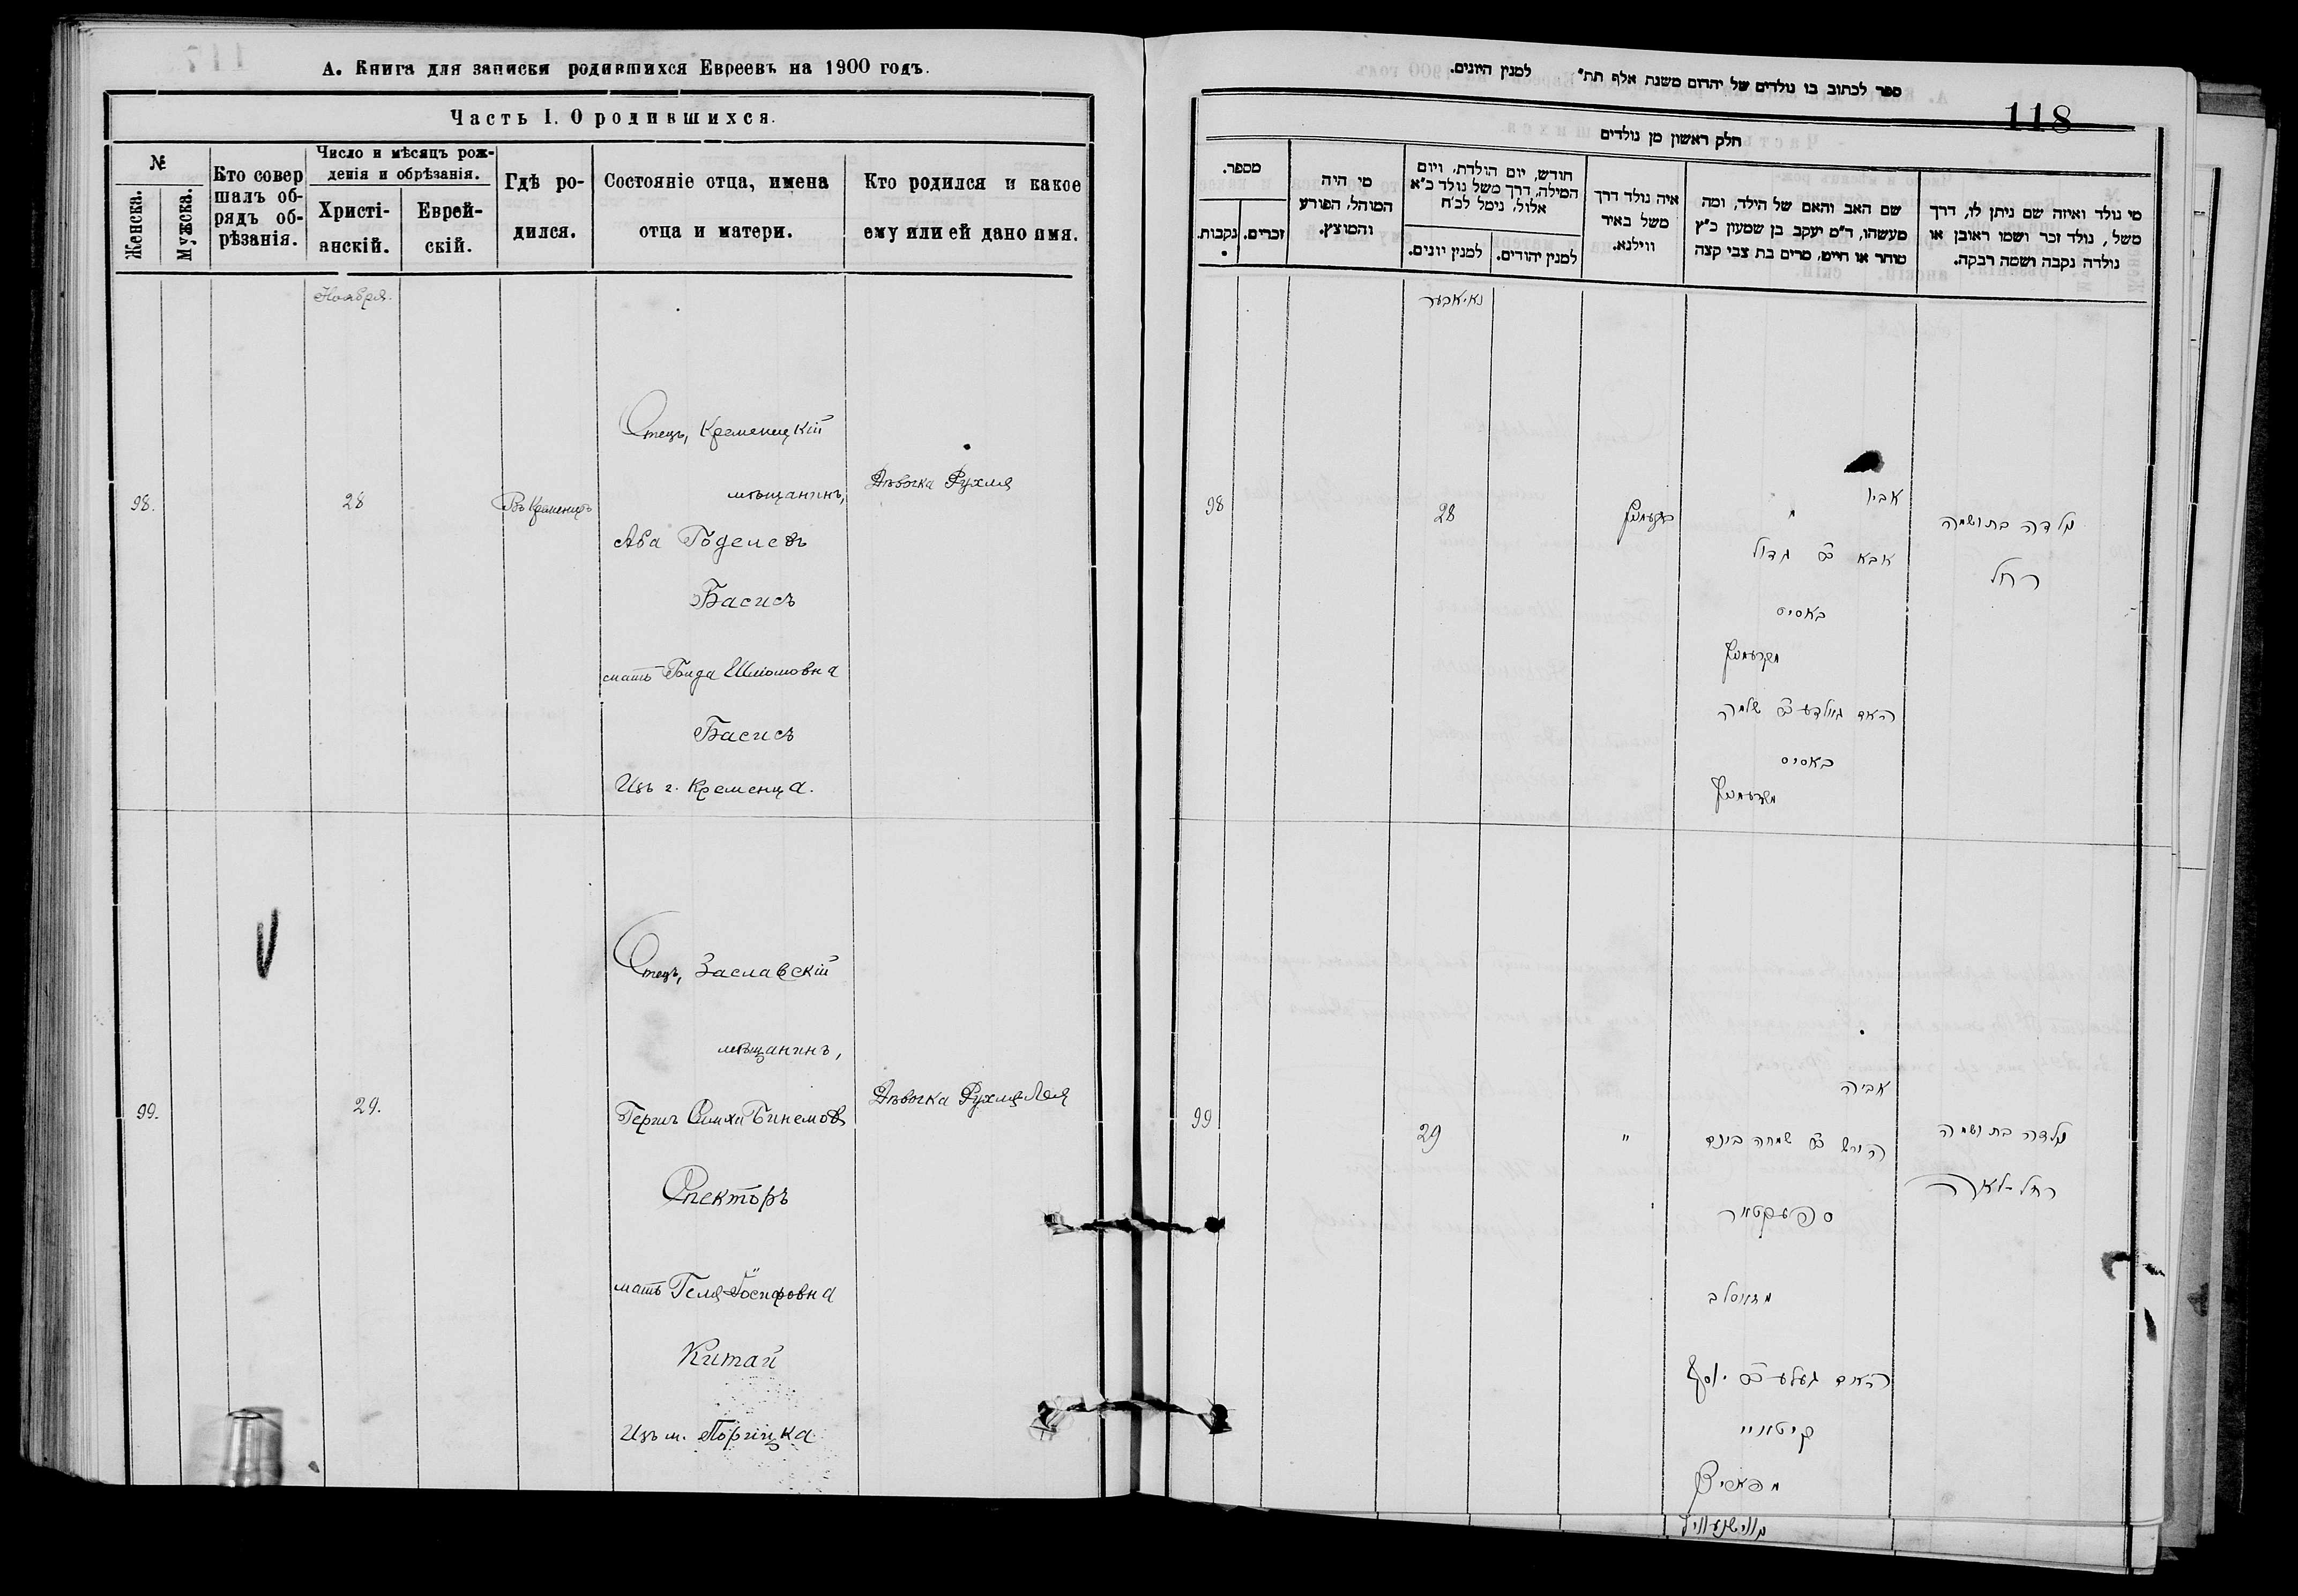 А. Книга для записки родившихся Евреевъ на 1900 годъ.
Часть I. О родившихся.
№
Женска.
Мужска.
Кто совер
шалъ об-
рядъ об-
рѣзанія.
Число и мѣсяцъ рож-
денія и обрѣзанія.
Христі-
анскій.
Еврей-
скій.
Гдѣ ро-
дился.
Состояніе отца, имена
отца и матери.
Кто родился и какое
ему или ей дано имя.
Ноября.
98.
28
Въ Кременцѣ
Отецъ, Кременецкій
мѣщанинъ,
Аба Годелевъ
Басисъ
мать Голда Шліомовна
Басисъ
Изъ г. Кременца.
Дѣвочка Рухля
99.
29.
Отецъ, Заславскій
мѣщанинъ,
Гершъ Симхи Бинемовъ
Спекторъ
мать Геля Іосифовна
Китай
Изъ м. Порицка
Дѣвочка Рухля Лея
ספר לכתוב בו נולדים של יהדום משנת אלף תת״ למנין היונים.
118
חלק ראשון מן נולדים
מספר.
נקבות.
זכרים.
מי היה
המוהל, הפורע
והמוצץ.
חודש, יום הולדת, ויום
המילה, דרך משל נולד כ״א
אלול, נימל לכ״ח
למנין יונים.
למנין יהודים.
איה נולד דרך
משל באיר
ווילנא.
שם האב והאם של הילד, ומה
מעשהו, ד״מ יעקב בן שמעון כ״ץ
סוחר או חייט, מרים בת צבי קצה
מי נולד ואיזה שם ניתן לו, דרך
משל, נולד זכר ושמו ראובן או
נולדה נקבה ושמה רבקה.
נאיאבער
98
28
בקרעמניץ
אביו
אבא ב״ר גדול
באסיס
מקרעמניץ
האם גאלדע ב״ר שלמה
באסיס
מקרעמניץ
נולדה בת ושמה
רחל
99
29
"
אביה
הירש ב״ר שמחה בינם
ספעקטאר
מזאסלב
האם געלע ב״ר יוסף
קיטאיי
מפאריצק
מווישנעוויץ
נולדה בת ושמה
רחל-לאה